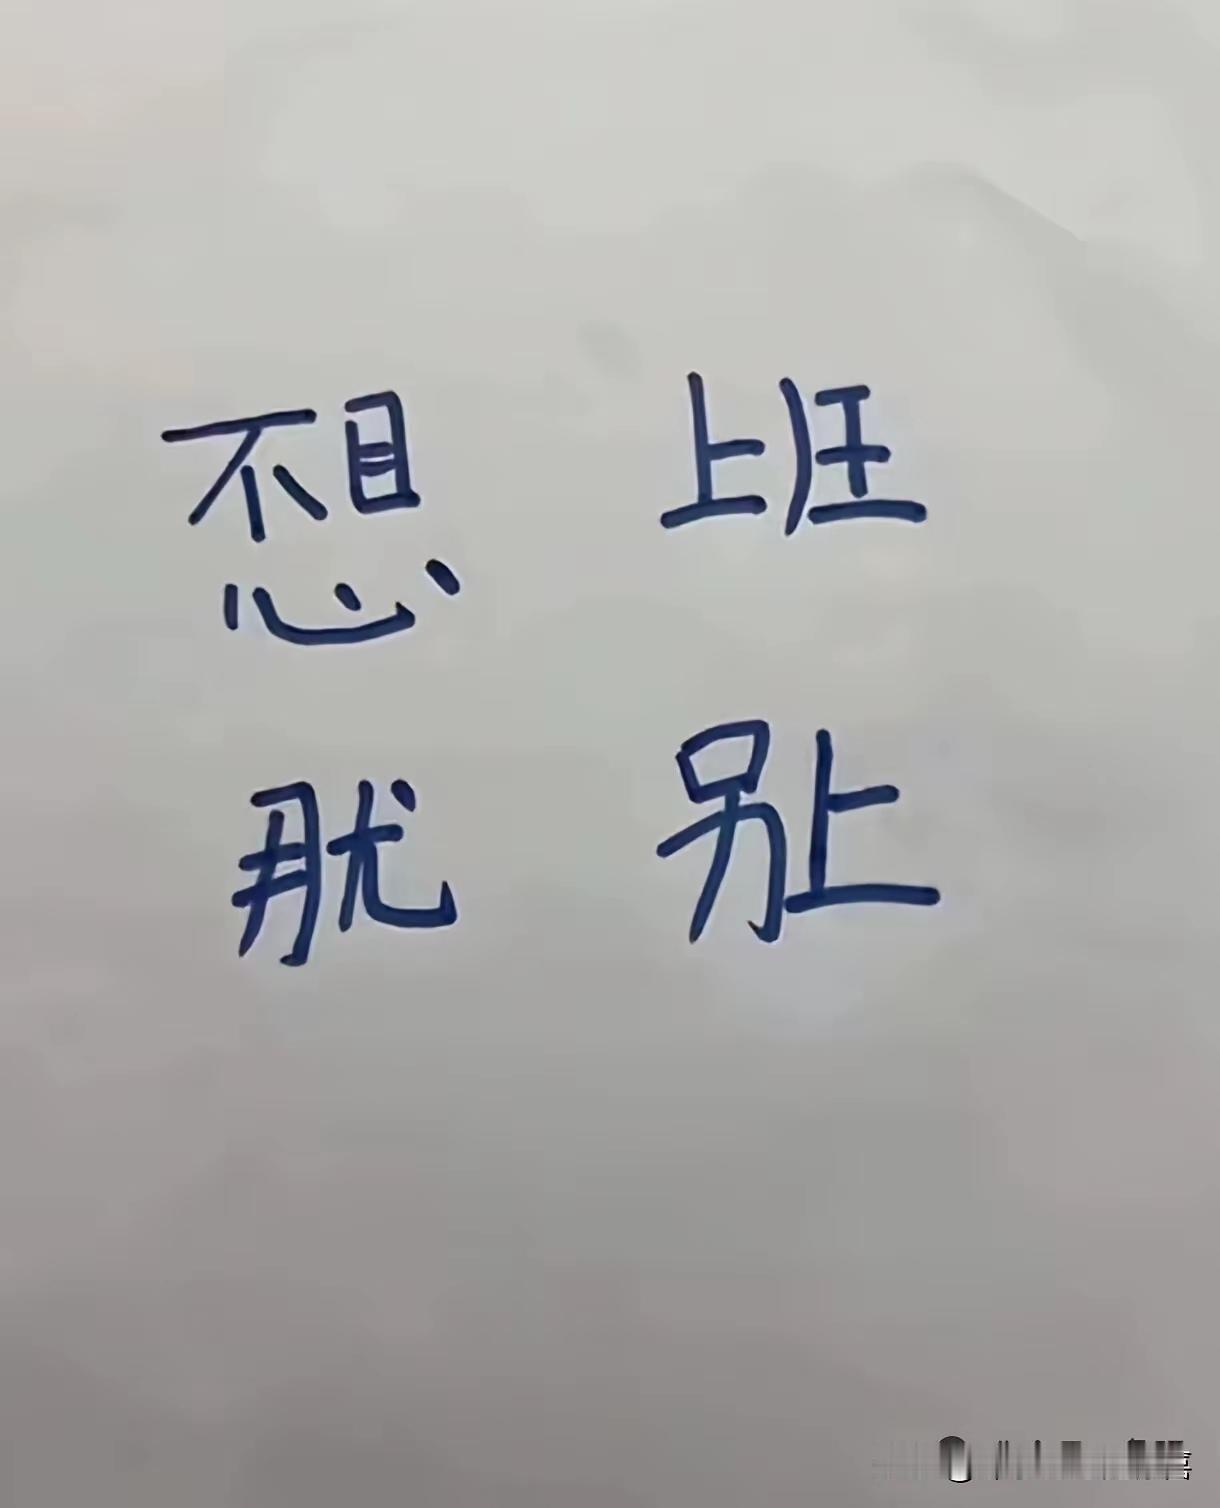 不想 上班
那就 别上